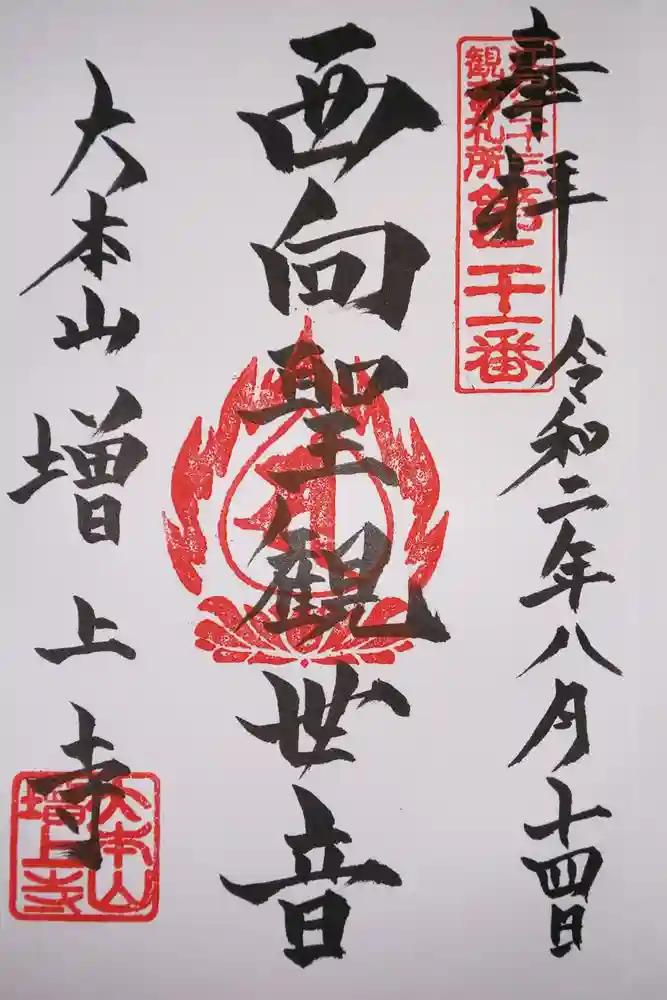 奉拝
令和二年八月十四日
江戸三十三
観音札所
第二十一番
西向聖観世音
大本山増上寺
大本山
増上寺